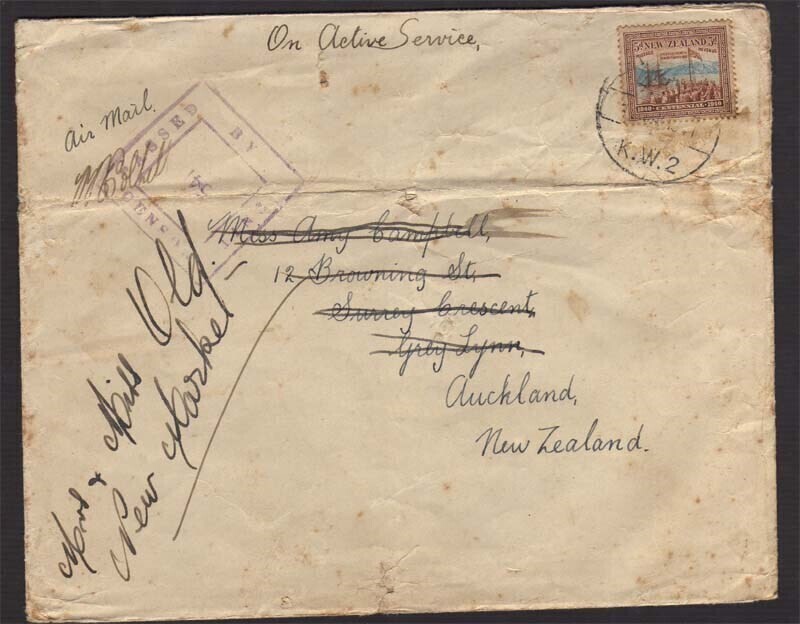 On Active Service,
5d NEW ZEALAND 5d
POSTAGE REVENUE
1840 CENTENNIAL 1940
K.W.2
Air Mail.
PASSED BY
CENSOR
Miss Amy Campbell,
12 Browning St,
Surrey Crescent,
Grey Lynn,
Auckland,
New Zealand.
Mrs & Miss Old
New Market